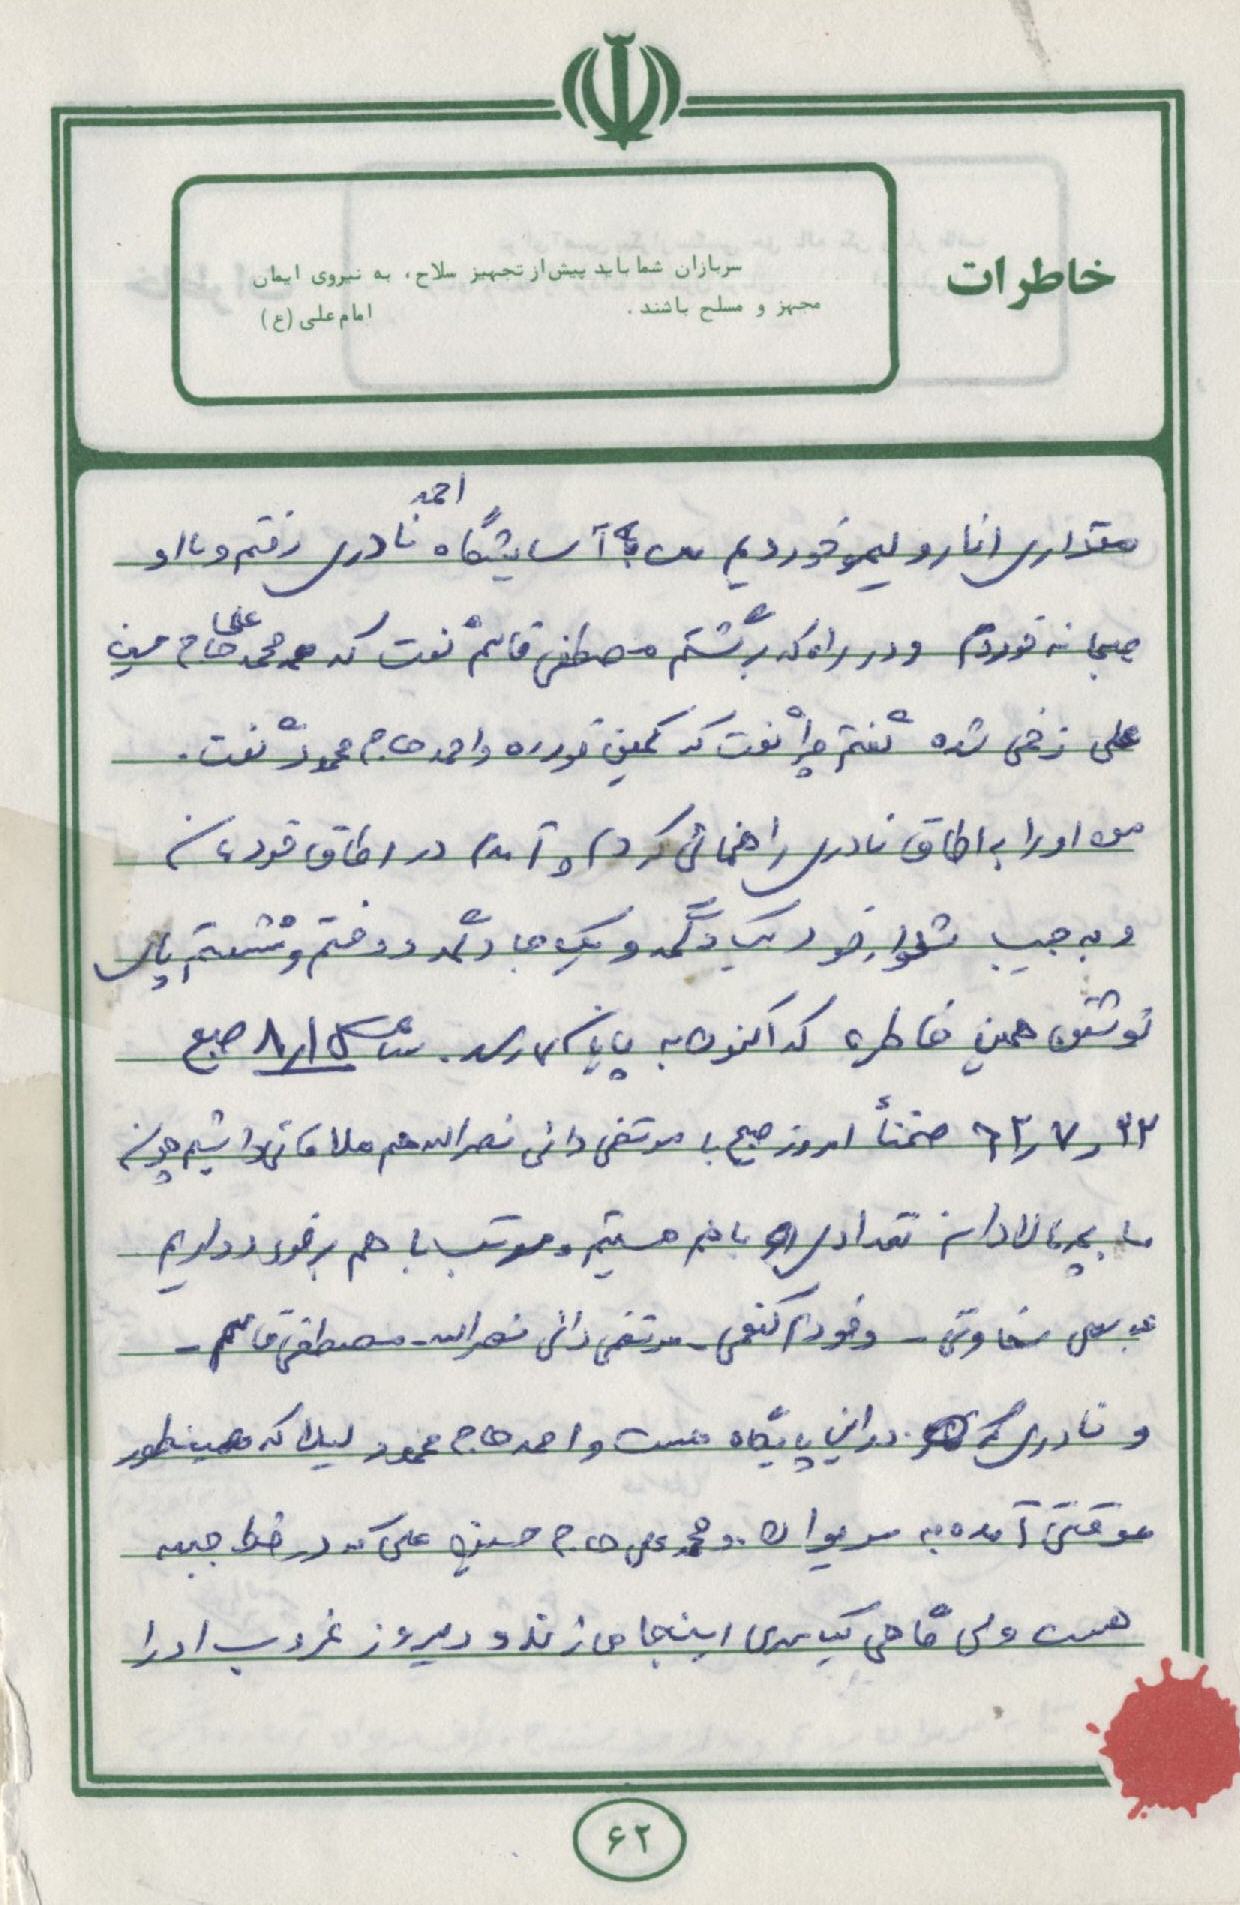 خاطرات
سربازان شما باید پیش از تجهیز سلاح، به نیروی ایمان
مجهز و مسلح باشند.
امام علی (ع)
احمد
مقداری انار و لیمو خوردیم من به آسایشگاه نادری رفتم و با او
صبحانه خوردم و در راه که برگشتم مصطفی قاسم گفت که محمد علی حاج حسین
علی زخمی شده گفتم چرا گفت که کمین خورده و احمد حاج محمود گفت.
من او را به اطاق نادری راهنمائی کردم و آمدم در اطاق خودمان
و به جیب شلوار خود یک دگمه و یک جا دگمه دوختم و نشستم پای
نوشتن همین خاطره که اکنون به پایان می‌رسد. ساعت ۸٫۱ صبح
۶۲٫۷٫۲۲ ضمناً امروز صبح با مرتضی دائی نصرالله هم ملاقاتی داشتیم چون
ما بچه‌های تعدادی با هم هستیم و مرتب با هم برخورد داریم
عباس سخاوتی - و خودم کنفی - مرتضی دائی نصرالله - مصطفی قاسم -
و نادری که در این پایگاه هست و احمد حاج محمود لیلا که همینطور
موقتی آمده به مریوان. و محمد علی حاج حسین علی که در خط جبهه
هست ولی گاهی یک سری اینجا می‌زند و دیروز غروب او را
۶۲